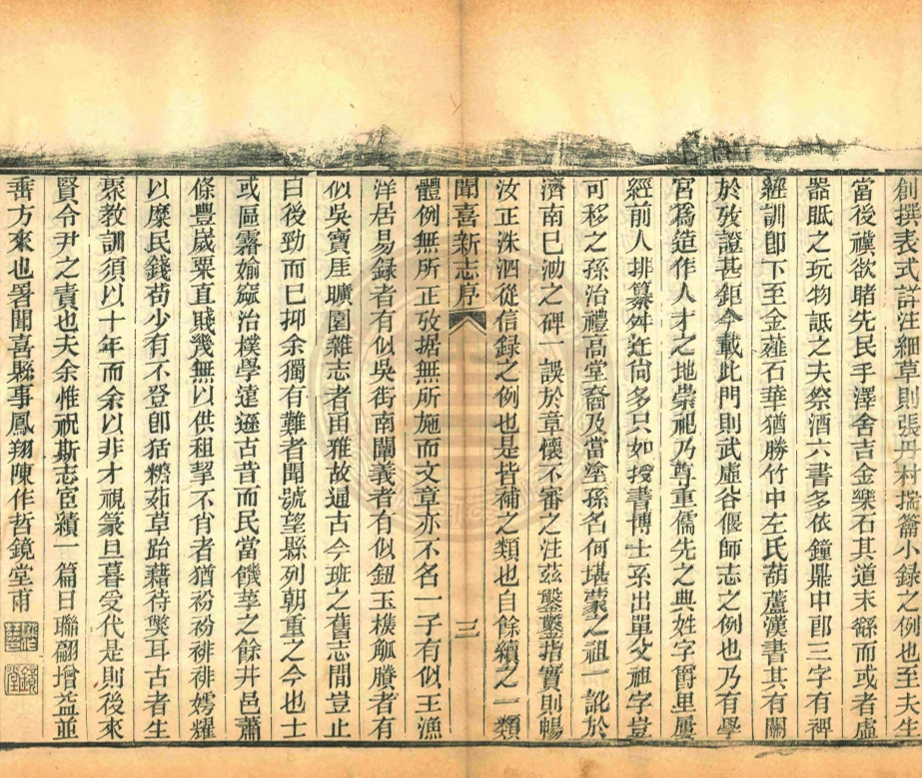 創撰表式詳注細草則張丹村揣籥小録之例也至夫生
當後禩欲睹先民手澤舍吉金樂石其道末繇而或者虛
器眡之玩物詆之夫祭酒六書多依鐘鼎中郎三字有裨
經訓卽下至金薤石華猶勝竹中左氏葫蘆漢書其有關
於攷證甚鉅今載此門則武虛谷偃師志之例也乃有學
宮爲造作人才之地崇祀乃尊重儒先之典姓字爵里屢
經前人排纂舛迕尙多只如授書博士系出單父祖字豈
可移之孫治禮高堂裔及當塗孫名何堪蒙之祖一訛於
濟南巳泐之碑一誤於章懷不審之注茲鑿鑿指實則暢
汝正洙泗從信録之例也是皆補之類也自餘續之一類
聞喜新志序
三
體例無所正攷据無所施而文章亦不名一子有似王漁
洋居易録者有似吳街南闡義者有似鈕玉樵觚賸者有
似吳寶厓曠園雜志者田雅故通古今班之舊志閒豈止
白後勁而巳抑余獨有難者聞號望縣列朝重之今也士
或區霿婾窳治樸學遠遜古昔而民當饑莩之餘井邑蕭
條豐歲粟直賤幾無以供租挈不肖者猶衯衯裶裶嫮耀
以糜民錢苟少有不登卽括糖茹草跆藉待斃耳古者生
聚教訓須以十年而余以非才視篆旦暮受代是則後來
賢令尹之責也夫余惟祝斯志宦績一篇日聯翩增益並
垂方來也署聞喜縣事鳳翔陳作哲鏡堂甫